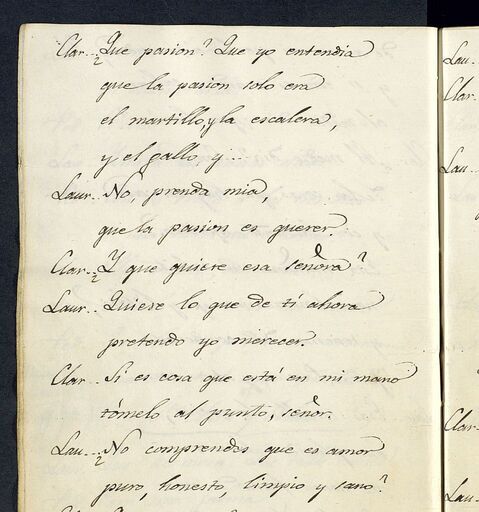 Clar... ¿Que pasion? Que yo entendia
que la pasion solo era
el martillo, y la escalera,
y el gallo, y...
Laur.. No, prenda mia,
que la pasion es querer.
Clar.. ¿Y que quiere esa señora?
Laur.. Quiere lo que de tí ahora
pretendo yo merecer.
Clar.. Sí es cosa que está en mi mano
tómelo al punto, señor.
Lau... ¿No comprendes que es amor
puro, honesto, limpio y sano?
Lau..
Clar.
Lau.
Clar..
Lau..